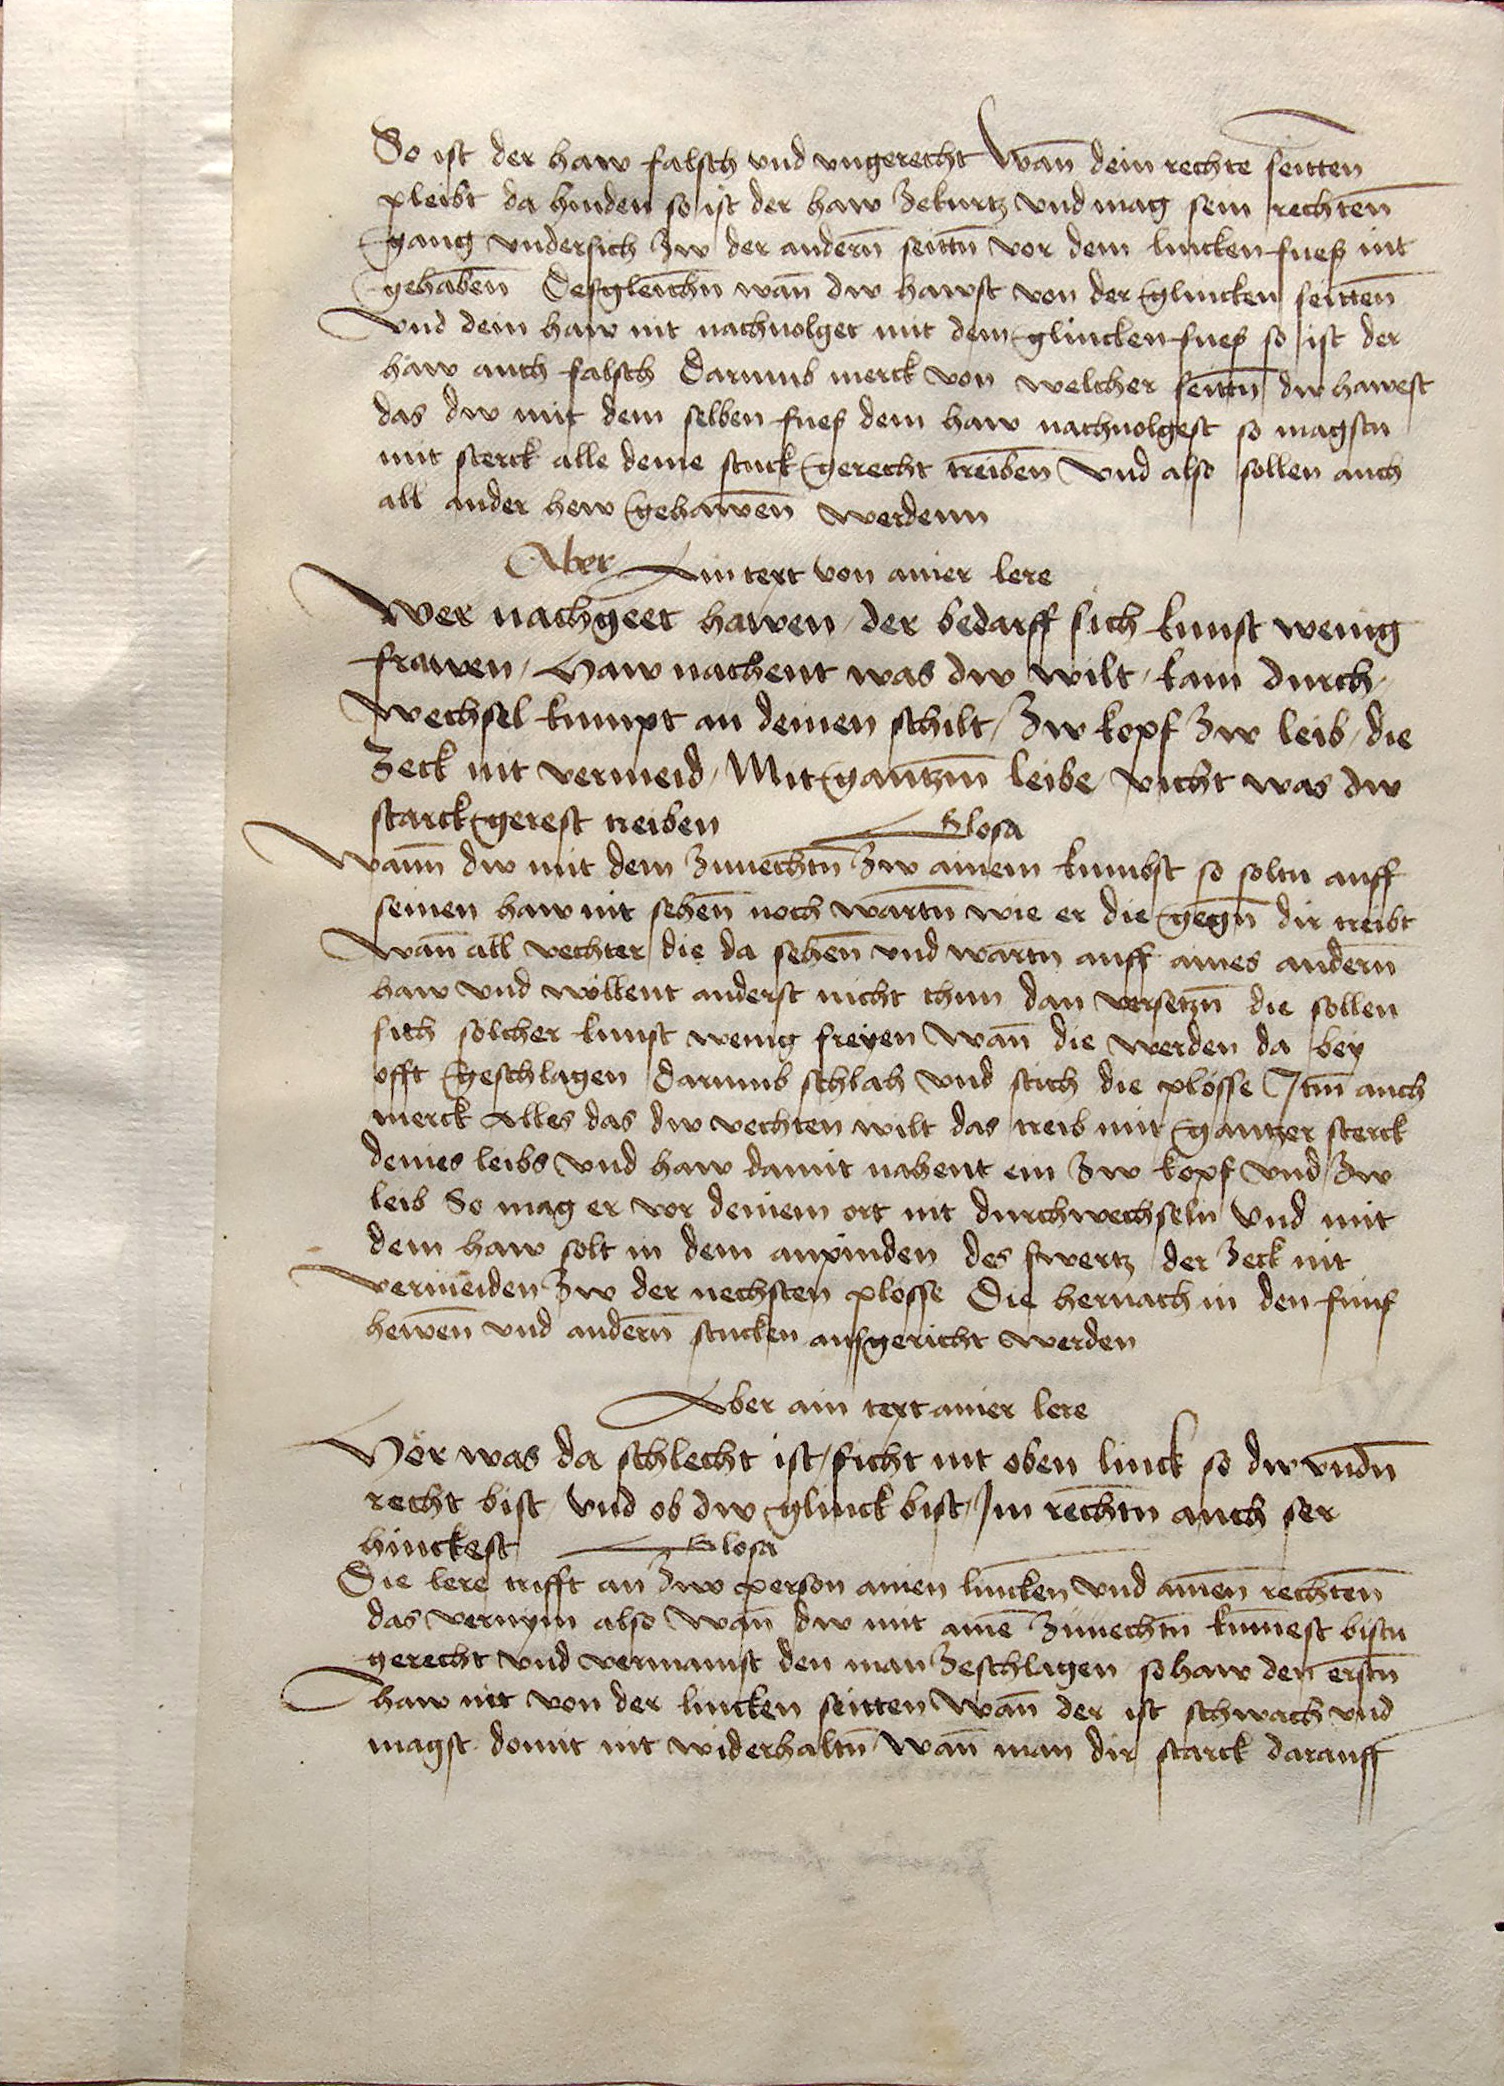 So ist der haw falsch vnd vngerecht Wan̄ dein rechte seitten
pleibt da hinden so ist der haw zekurtz vnd mag sein rechten̄
gang vndersich zw der andern̄ seittn̄ vor dem lincken fuess nit
gehaben̄ Desgleichn̄ wan̄ dw hawst von der glincken seitten̄
Vnd dein haw nit nachuolget mit dem glincken fuess so ist der
haw auch falsch Darumb merck von welcher seittn̄ dw hawest
das dw mit dem selben fuess dem haw nachuolgest so magstu
mit sterck alle deine stuck gerecht treiben̄ Vnd also sollen auch
all ander hew gehawen̄ werdenn
Aber Ain text von ainer lere
Wer nachgeet hawen / der bedarff sich kunst wenig
frawen / Haw nachent was dw wilt / kain durch /
Wechsel kumpt an deinen schilt / Zw kopf Zw leib / die
Zeck nit vermeid / Mit gantzm̄ leibe / vicht was dw
starck gerest treiben Glosa
Wann̄ dw mit dem zuuechtn̄ zw ainem kumbst so soltu auff
seinen haw nit sehen̄ noch wartn̄ wie er die gegn̄ dir treibt
Wan̄ all vechter die da sehen̄ vnd wartn auff aines andern̄
haw vnd wöllent anderst nicht thun dan versetzn̄ die sollen
sich solcher kunst wenig freyen Wan̄ die werden da bey
offt geschlagen Darumb schlah vnd stich die plösse Itm̄ auch
merck Alles das dw vechten wilt das treib mit gantzer sterck
deines leibs Vnd haw damit nahent ein Zw kopf Vnd Zw
leib So mag er vor deinem ort nit durchwechseln Vnd mit
dem haw solt in dem anpinden des swertz der Zeck nit
vermeiden Zw der nechsten plösse Die hernach in den funf
hewen̄ vnd andern̄ stucken ausgericht werden
Aber ain text ainer lere
Hör was da schlecht ist / ficht nit oben linck so dw vndn̄
recht bist / Vnd ob dw glinck bist / Im rechtn̄ auch ser
hinckest Glosa
Die lere trifft an Zwo person ainen lincken Vnd ainen̄ rechten̄
das vernym also Wan̄ dw mit aine̅ zuuechtn̄ kum̄est bistu
gerecht vnd vermainst den man zeschlagen so haw den erstn̄
haw nit von der lincken seitten Wan̄ der ist schwach vnd
magst domit nit widerhaltn̄ Wan̄ man dir starck darauff